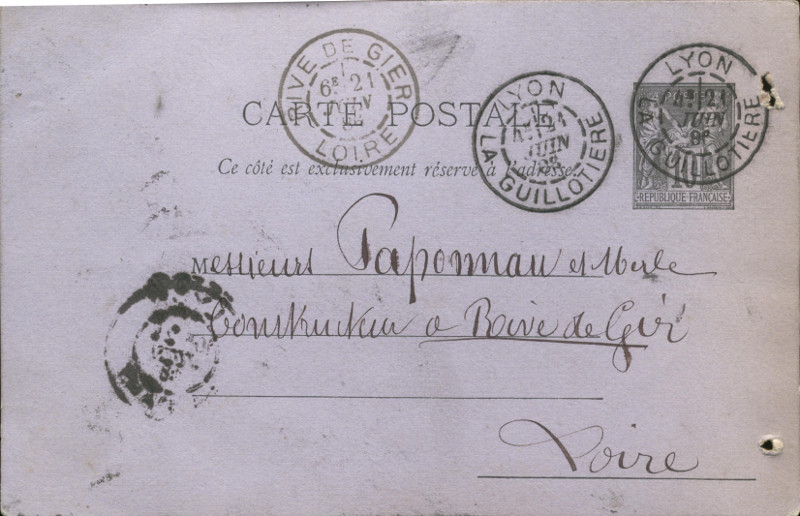 RIVE DE GIER
6E 21
JUIN
LOIRE
LYON
JUIN
LA GUILLOTIERE
LYON
4E 21
JUIN
LA GUILLOTIERE
CARTE POSTALE
Ce côté est exclusivement réservé à l'adresse.
10
REPUBLIQUE FRANCAISE
Messieurs Paponnau et Merle
Constructeur a Rive de Gier
Loire